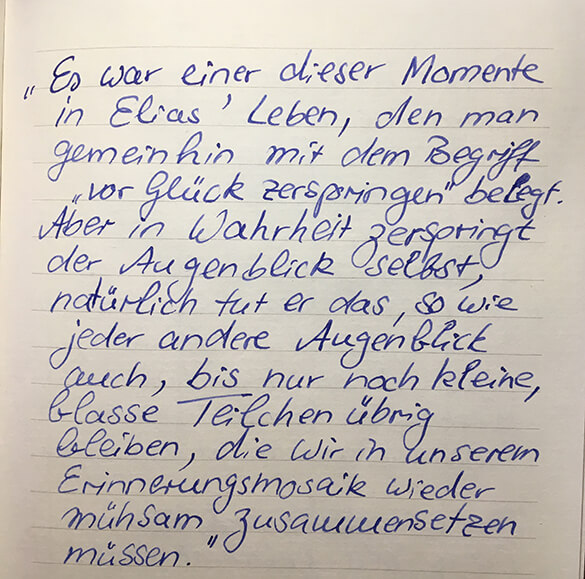 „Es war einer dieser Momente
in Elias' Leben, den man
gemeinhin mit dem Begriff
„vor Glück zerspringen" belegt.
Aber in Wahrheit zerspringt
der Augenblick selbst,
natürlich tut er das, so wie
jeder andere Augenblick
auch, bis nur noch kleine,
blasse Teilchen übrig
bleiben, die wir in unserem
Erinnerungsmosaik wieder
mühsam zusammensetzen
müssen."